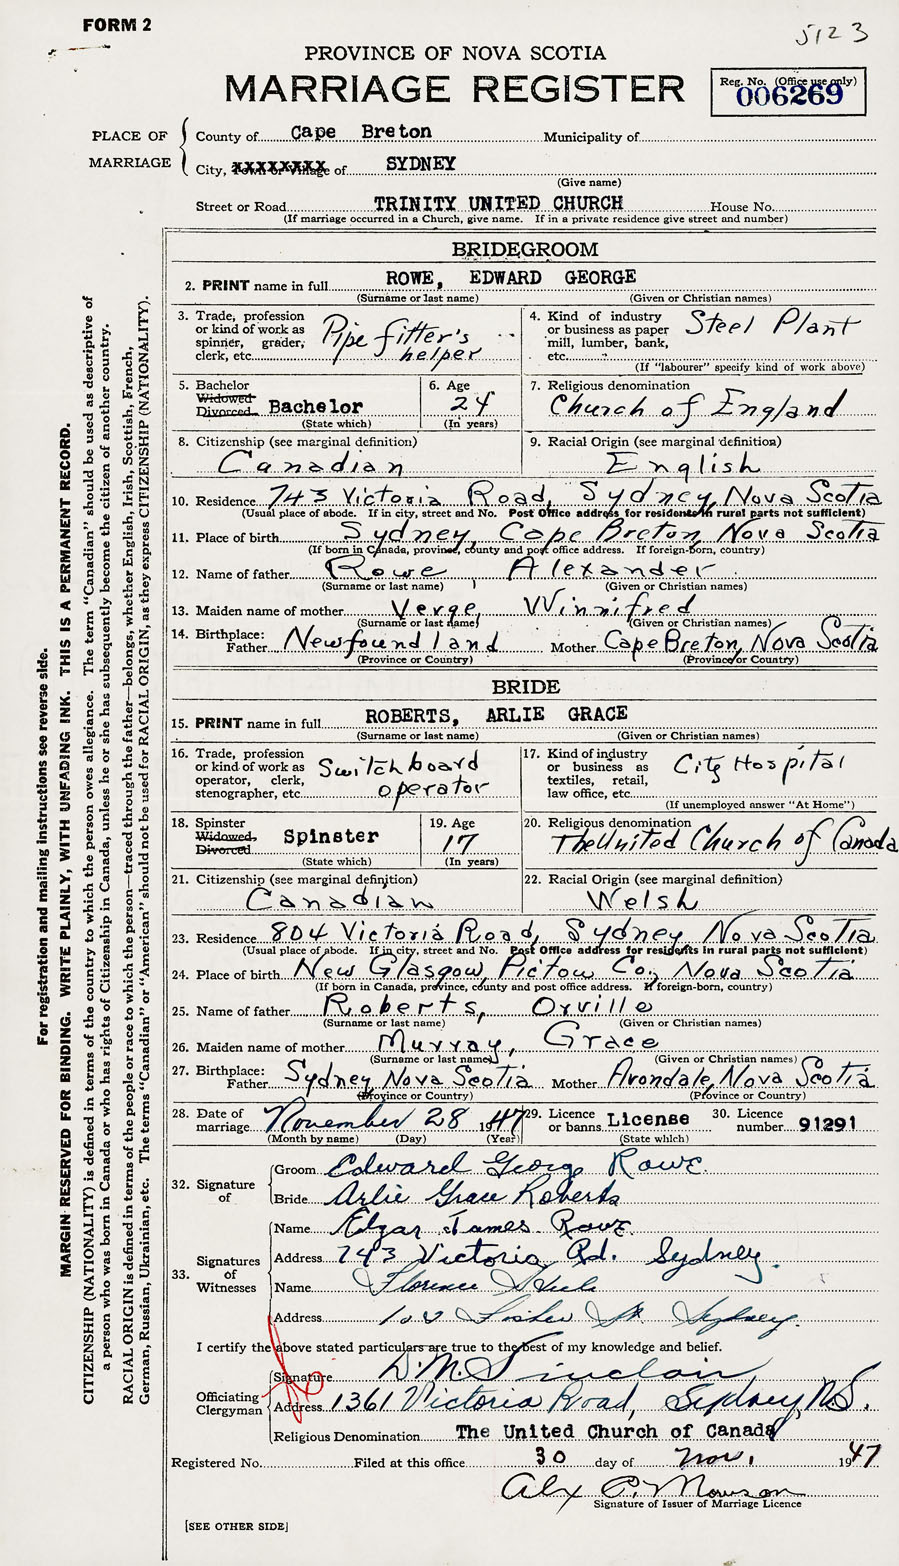 FORM 2
5123
PROVINCE OF NOVA SCOTIA
MARRIAGE REGISTER
Reg. No. (Office use only)
006269
PLACE OF MARRIAGE
County of Cape Breton Municipality of
City, Town or Village of SYDNEY
(Give name)
Street or Road TRINITY UNITED CHURCH House No.
(If marriage occurred in a Church, give name. If in a private residence give street and number)
BRIDEGROOM
2. PRINT name in full ROWE, EDWARD GEORGE
(Surname or last name) (Given or Christian names)
3. Trade, profession or kind of work as spinner, grader, clerk, etc. Pipe fitter's helper
4. Kind of industry or business as paper mill, lumber, bank, etc. Steel Plant
(If "labourer" specify kind of work above)
5. Bachelor Widowed Divorced Bachelor
(State which)
6. Age 24
(In years)
7. Religious denomination
Church of England
8. Citizenship (see marginal definition)
Canadian
9. Racial Origin (see marginal definition)
English
10. Residence 743 Victoria Road, Sydney, Nova Scotia
(Usual place of abode. If in city, street and No. Post Office address for residents in rural parts not sufficient)
11. Place of birth Sydney, Cape Breton, Nova Scotia
(If born in Canada, province, county and post office address. If foreign-born, country)
12. Name of father Rowe Alexander
(Surname or last name) (Given or Christian names)
13. Maiden name of mother Verge, Winnifred
(Surname or last name) (Given or Christian names)
14. Birthplace: Father Newfoundland Mother Cape Breton, Nova Scotia
(Province or Country) (Province or Country)
BRIDE
15. PRINT name in full ROBERTS, ARLIE GRACE
(Surname or last name) (Given or Christian names)
16. Trade, profession or kind of work as operator, clerk, stenographer, etc Switchboard operator
17. Kind of industry or business as textiles, retail, law office, etc. City Hospital
(If unemployed answer "At Home")
18. Spinster Widowed, Divorced Spinster
(State which)
19. Age 17
(In years)
20. Religious denomination
The United Church of Canada
21. Citizenship (see marginal definition)
Canadian
22. Racial Origin (see marginal definition)
Welsh
23. Residence 804 Victoria Road, Sydney Nova Scotia
(Usual place of abode. If in city, street and No. Post Office address for residents in rural parts not sufficient)
24. Place of birth New Glasgow, Pictou Co., Nova Scotia
(If born in Canada, province, county and post office address. If foreign-born, country)
25. Name of father Roberts, Orville
(Surname or last name) (Given or Christian names)
26. Maiden name of mother Murray, Grace
(Surname or last name) (Given or Christian names)
27. Birthplace: Father Sydney, Nova Scotia Mother Avondale, Nova Scotia
(Province or Country) (Province or Country)
28. Date of marriage November 28 1947
(Month by name) (Day) (Year)
29. Licence or banns License
(State which)
30. Licence number 91291
32. Signature of
Groom Edward George Rowe
Bride Arlie Grace Roberts
33. Signatures of Witnesses
Name Edgar James Rowe
Address 743 Victoria Rd. Sydney.
Name Florence
Address Fisher St. Sydney.
I certify the above stated particulars are true to the best of my knowledge and belief.
Officiating Clergyman
Signature D. M. Sinclair
Address 1361 Victoria Road, Sydney, N.S.
Religious Denomination The United Church of Canada
Registered No. Filed at this office 30 day of Nov. 1947
Alx P. Mowson
Signature of Issuer of Marriage Licence
[SEE OTHER SIDE]
For registration and mailing instructions see reverse side.
MARGIN RESERVED FOR BINDING. WRITE PLAINLY, WITH UNFADING INK. THIS IS A PERMANENT RECORD.
CITIZENSHIP (NATIONALITY) is defined in terms of the country to which the person owes allegiance. The term "Canadian" should be used as descriptive of
a person who was born in Canada or who has rights of Citizenship in Canada, unless he or she has subsequently become the citizen of another country.
RACIAL ORIGIN is defined in terms of the people or race to which the person—traced through the father—belongs, whether English, Irish, Scottish, French,
German, Russian, Ukrainian, etc. The terms "Canadian" or "American" should not be used for RACIAL ORIGIN, as they express CITIZENSHIP (NATIONALITY).